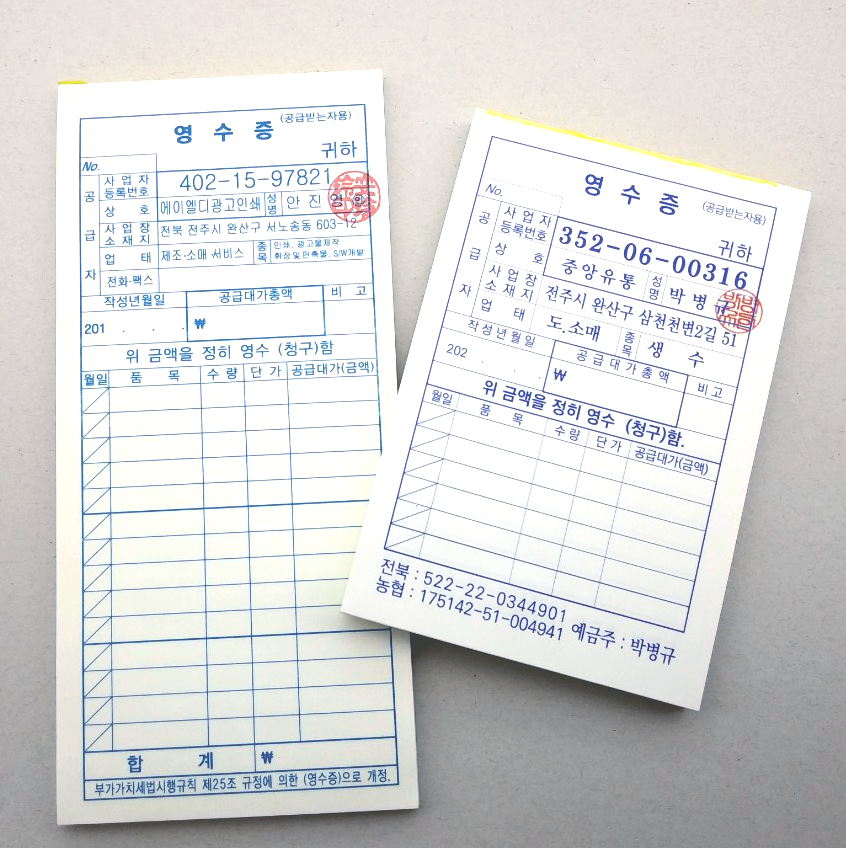 영 수 증 (공급받는자용)
귀하
No.
공 급 자
사 업 자 등록번호 402-15-97821
상 호 에이엘디광고인쇄 성명 안 진 영
사 업 장 소 재 지 전북 전주시 완산구 서노송동 603-12
업 태 제조·소매·서비스 종목 인쇄, 광고물제작
휘장및판촉물, S/W개발
전화·팩스
작성년월일 공급대가총액 비 고
201 . . . ₩
위 금액을 정히 영수 (청구)함
월일 품 목 수 량 단 가 공급대가(금액)
합 계 ₩
부가가치세법시행규칙 제25조 규정에 의한 (영수증)으로 개정.
영 수 증 (공급받는자용)
No. 귀하
공 급 자
사 업 자 등록번호 352-06-00316
상 호 중앙유통 성명 박 병 규
사 업 장 소 재 지 전주시 완산구 삼천천변2길 51
업 태 도.소매 종목 생 수
작성년월일 공급대가총액 비고
202 . . . ₩
위 금액을 정히 영수 (청구)함.
월일 품 목 수량 단가 공급대가(금액)
전북 : 522-22-0344901
농협 : 175142-51-004941 예금주 : 박병규